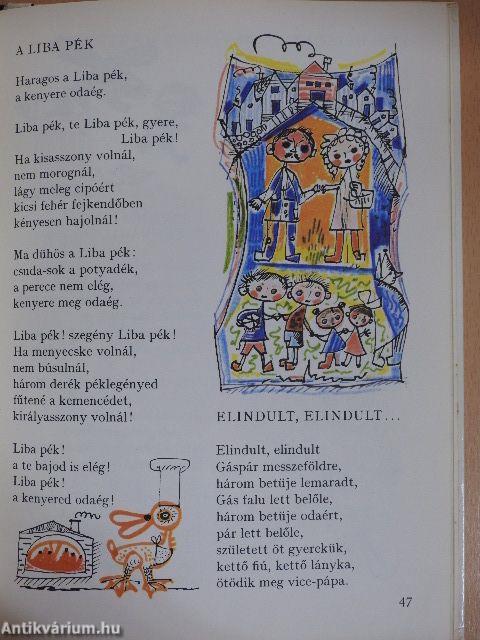 A LIBA PÉK
Haragos a Liba pék,
a kenyere odaég.
Liba pék, te Liba pék, gyere,
Liba pék!
Ha kisasszony volnál,
nem morognál,
lágy meleg cipóért
kicsi fehér fejkendőben
kényesen hajolnál!
Ma dühös a Liba pék:
csuda-sok a potyadék,
a perece nem elég,
kenyere meg odaég.
Liba pék! szegény Liba pék!
Ha menyecske volnál,
nem búsulnál,
három derék péklegényed
fűtené a kemencédet,
királyasszony volnál!
Liba pék!
a te bajod is elég!
Liba pék!
a kenyered odaég!
ELINDULT, ELINDULT...
Elindult, elindult
Gáspár messzeföldre,
három betüje lemaradt,
Gás falu lett belőle,
három betüje odaért,
pár lett belőle,
született öt gyerekük,
kettő fiú, kettő lányka,
ötödik meg vice-pápa.
47
Antikvárium.hu